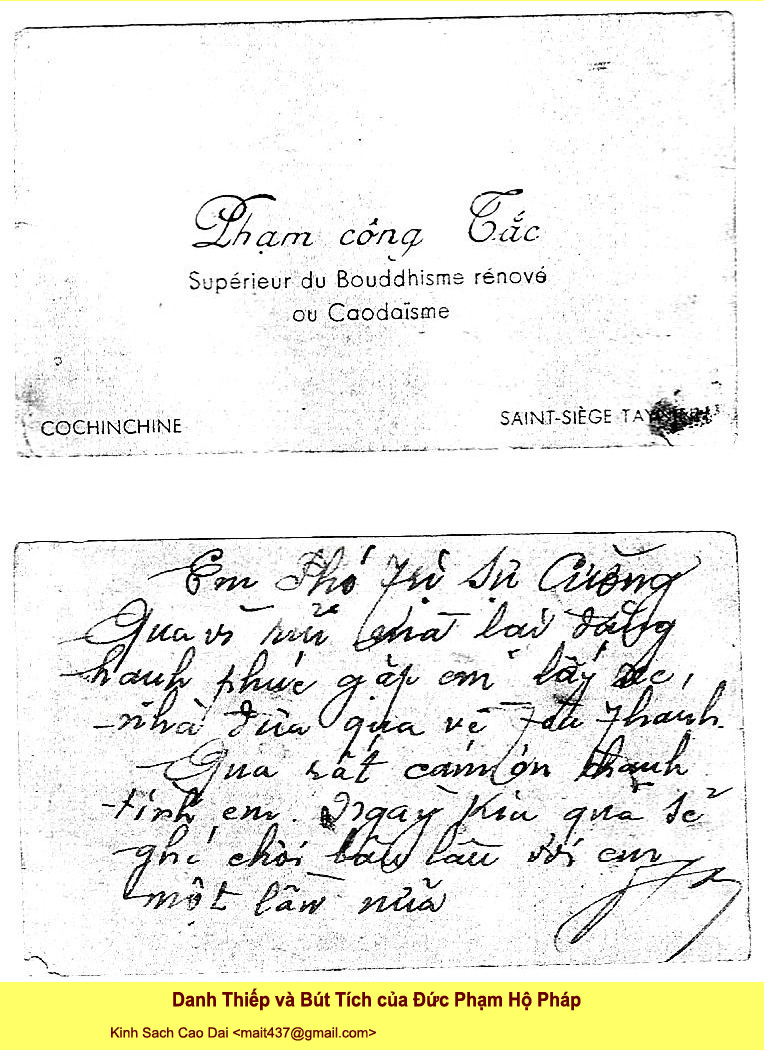 Phạm công Tắc
Supérieur du Bouddhisme rénové
ou Caodaïsme
COCHINCHINE
SAINT-SIÈGE
Em Phó Trị Sự Cường
Qua vì rủi mà lại đặng
hạnh phúc gặp em lấy xe,
nhà đưa qua về Toà Thánh.
Qua rất cám ơn thạnh
tình em. Ngày kia qua sẽ
ghé chơi lâu với em
một lần nữa
Danh Thiếp và Bút Tích của Đức Phạm Hộ Pháp
Kinh Sach Cao Dai <mait437@gmail.com>